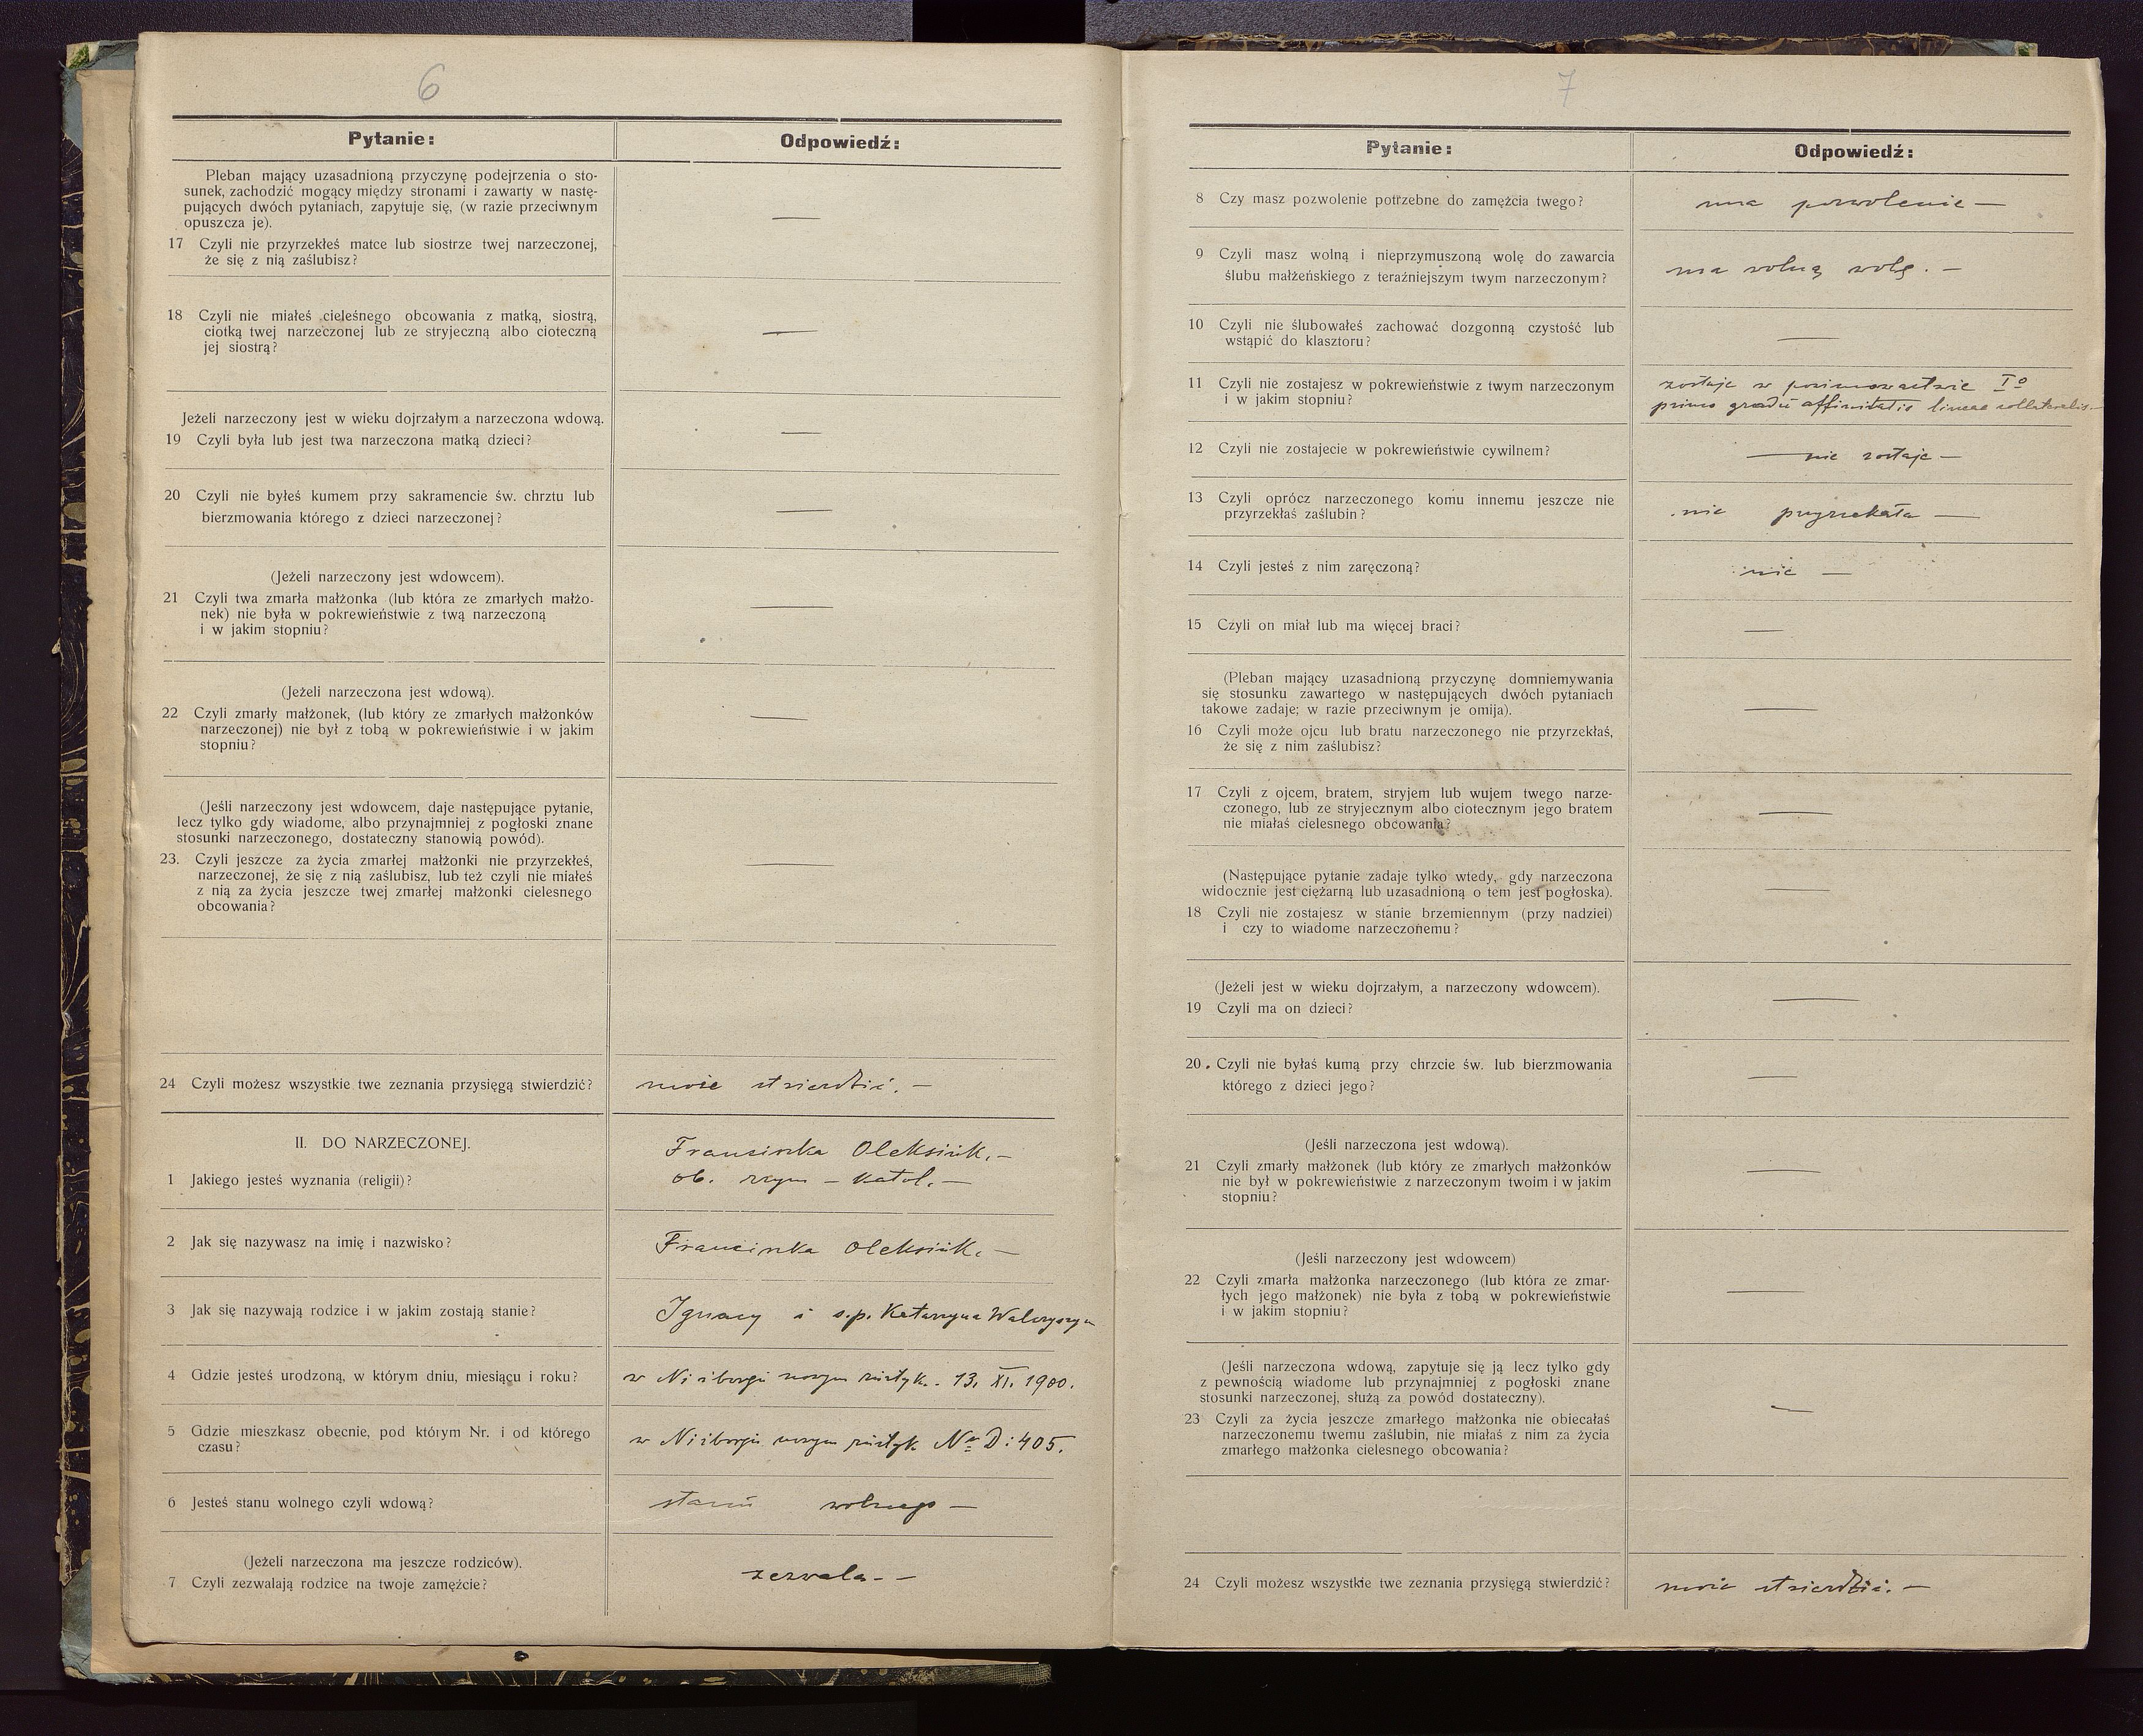 6
Pytanie:
Odpowiedź:
Pleban mający uzasadnioną przyczynę podejrzenia o sto-
sunek, zachodzić mogący między stronami i zawarty w nastę-
pujących dwóch pytaniach, zapytuje się, (w razie przeciwnym
opuszcza je).
—
17 Czyli nie przyrzekłeś matce lub siostrze twej narzeczonej,
że się z nią zaślubisz?
18 Czyli nie miałeś cieleśnego obcowania z matką, siostrą,
ciotką twej narzeczonej lub ze stryjeczną albo cioteczną
jej siostrą?
—
Jeżeli narzeczony jest w wieku dojrzałym a narzeczona wdową.
19 Czyli była lub jest twa narzeczona matką dzieci?
—
20 Czyli nie byłeś kumem przy sakramencie św. chrztu lub
bierzmowania którego z dzieci narzeczonej?
—
(Jeżeli narzeczony jest wdowcem).
21 Czyli twa zmarła małżonka (lub która ze zmarłych małżo-
nek) nie była w pokrewieństwie z twą narzeczoną
i w jakim stopniu?
—
(Jeżeli narzeczona jest wdową).
22 Czyli zmarły małżonek, (lub który ze zmarłych małżonków
narzeczonej) nie był z tobą w pokrewieństwie i w jakim
stopniu?
—
(Jeśli narzeczony jest wdowcem, daje następujące pytanie,
lecz tylko gdy wiadome, albo przynajmniej z pogłoski znane
stosunki narzeczonego, dostateczny stanowią powód).
23. Czyli jeszcze za życia zmarłej małżonki nie przyrzekłeś,
narzeczonej, że się z nią zaślubisz, lub też czyli nie miałeś
z nią za życia jeszcze twej zmarłej małżonki cielesnego
obcowania?
—
24 Czyli możesz wszystkie twe zeznania przysięgą stwierdzić?
może stwierdzić. —
II. DO NARZECZONEJ.
Franciszka Oleksiuk. —
1 Jakiego jesteś wyznania (religii)?
ob. rzym - katol. —
2 Jak się nazywasz na imię i nazwisko?
Franciszka Oleksiuk. —
3 Jak się nazywają rodzice i w jakim zostają stanie?
Ignacy i s.p. Katarzyna
4 Gdzie jesteś urodzoną, w którym dniu, miesiącu i roku?
w Niżborgu nowym 13. XI. 1900.
5 Gdzie mieszkasz obecnie, pod którym Nr. i od którego
czasu?
w Niżborgu nowym Nr D: 405.
6 Jesteś stanu wolnego czyli wdową?
stanu wolnego —
(Jeżeli narzeczona ma jeszcze rodziców).
7 Czyli zezwalają rodzice na twoje zamężcie?
zezwala. —
7
Pytanie:
Odpowiedź:
8 Czy masz pozwolenie potrzebne do zamężcia twego?
ma pozwolenie —
9 Czyli masz wolną i nieprzymuszoną wolę do zawarcia
ślubu małżeńskiego z teraźniejszym twym narzeczonym?
ma wolną wolę. —
10 Czyli nie ślubowałeś zachować dozgonną czystość lub
wstąpić do klasztoru?
—
11 Czyli nie zostajesz w pokrewieństwie z twym narzeczonym
i w jakim stopniu?
zostaje w powinowactwie Iº
primo gradu affinitatis lineae collateralis. —
12 Czyli nie zostajecie w pokrewieństwie cywilnem?
— nie zostaje —
13 Czyli oprócz narzeczonego komu innemu jeszcze nie
przyrzekłaś zaślubin?
nie przyrzekała —
14 Czyli jesteś z nim zaręczoną?
nie —
15 Czyli on miał lub ma więcej braci?
—
(Pleban mający uzasadnioną przyczynę domniemywania
się stosunku zawartego w następujących dwóch pytaniach
takowe zadaje; w razie przeciwnym je omija).
—
16 Czyli może ojcu lub bratu narzeczonego nie przyrzekłaś,
że się z nim zaślubisz?
17 Czyli z ojcem, bratem, stryjem lub wujem twego narze-
czonego, lub ze stryjecznym albo ciotecznym jego bratem
nie miałaś cielesnego obcowania?
—
(Następujące pytanie zadaje tylko wtedy, gdy narzeczona
widocznie jest ciężarną lub uzasadnioną o tem jest pogłoska).
—
18 Czyli nie zostajesz w stanie brzemiennym (przy nadziei)
i czy to wiadome narzeczonemu?
(Jeżeli jest w wieku dojrzałym, a narzeczony wdowcem).
19 Czyli ma on dzieci?
—
20. Czyli nie byłaś kumą przy chrzcie św. lub bierzmowania
którego z dzieci jego?
—
(Jeśli narzeczona jest wdową).
21 Czyli zmarły małżonek (lub który ze zmarłych małżonków
nie był w pokrewieństwie z narzeczonym twoim i w jakim
stopniu?
—
(Jeśli narzeczony jest wdowcem)
22 Czyli zmarła małżonka narzeczonego (lub która ze zmar-
łych jego małżonek) nie była z tobą w pokrewieństwie
i w jakim stopniu?
—
(Jeśli narzeczona wdową, zapytuje się ją lecz tylko gdy
z pewnością wiadome lub przynajmniej z pogłoski znane
stosunki narzeczonej, służą za powód dostateczny).
—
23 Czyli za życia jeszcze zmarłego małżonka nie obiecałaś
narzeczonemu twemu zaślubin, nie miałaś z nim za życia
zmarłego małżonka cielesnego obcowania?
24 Czyli możesz wszystkie twe zeznania przysięgą stwierdzić?
może stwierdzić. —